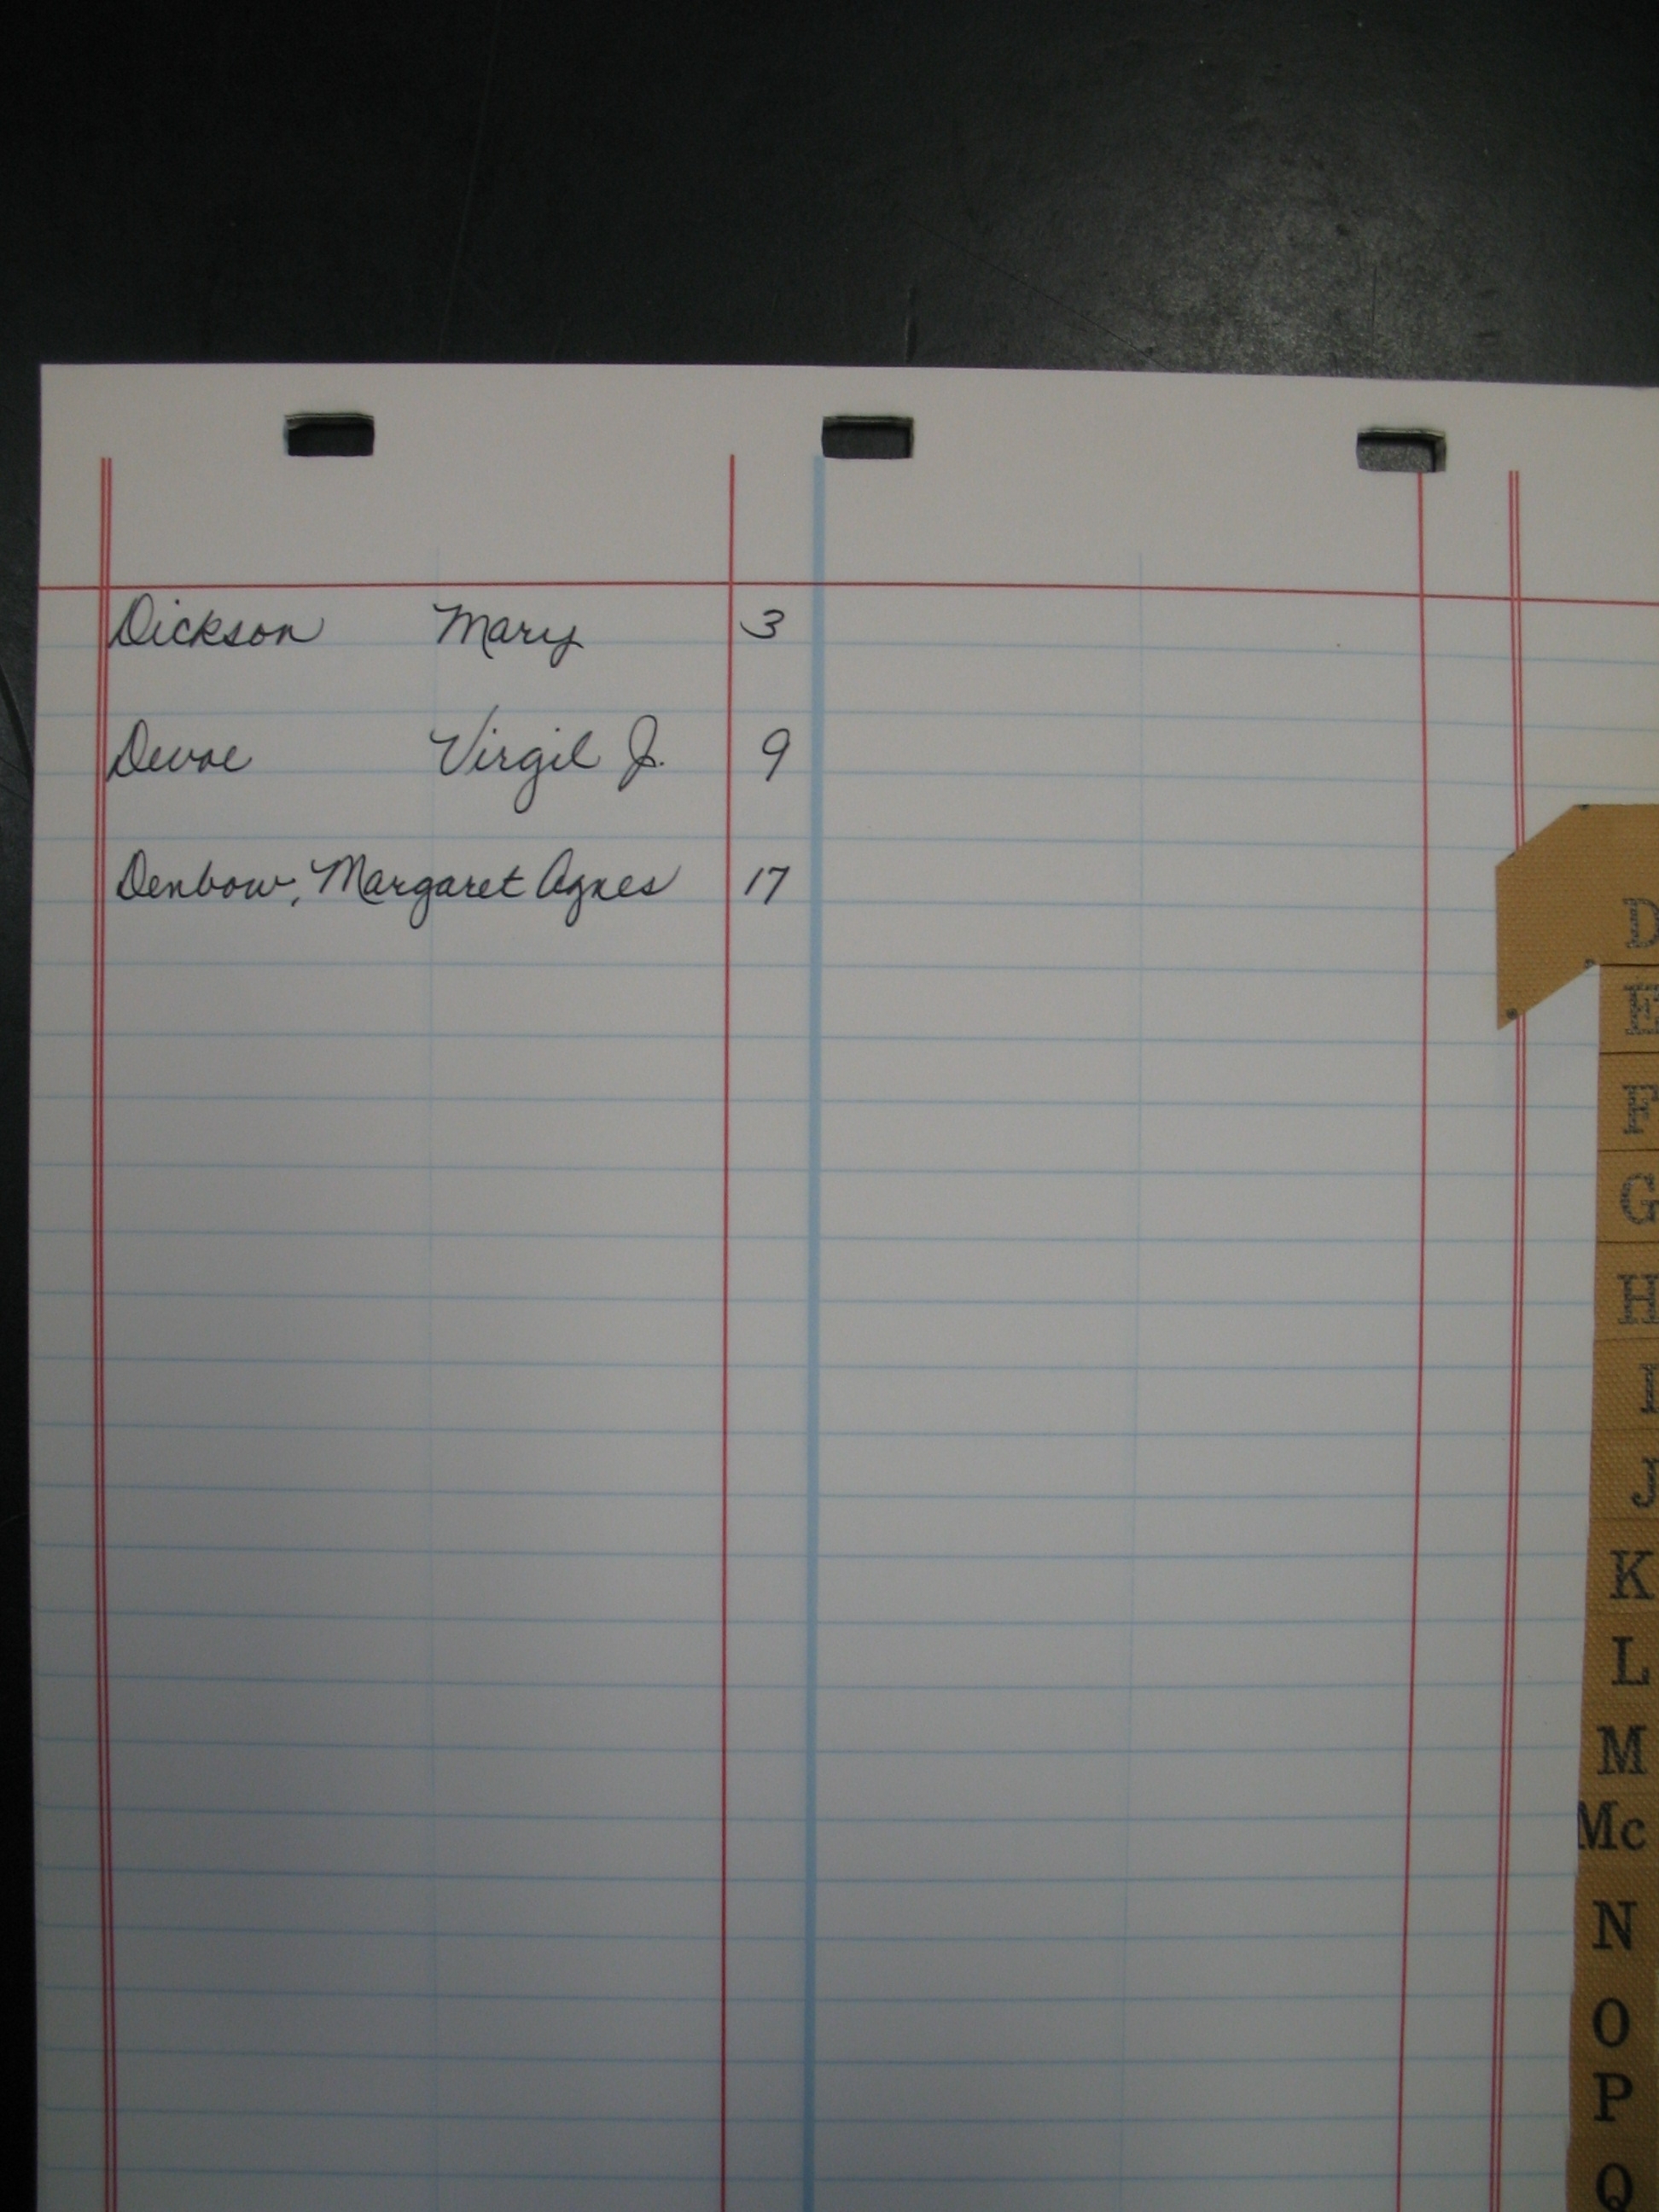 Dickson Mary 3
Devoe Virgil J. 9
Denbow, Margaret Agnes 17
D
E
F
G
H
I
J
K
L
M
Mc
N
O
P
Q